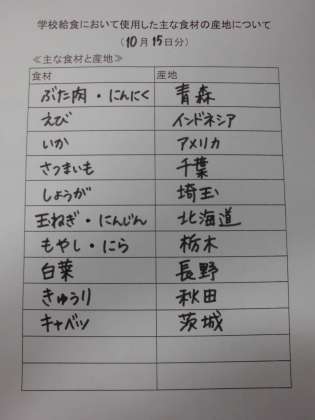 学校給食において使用した主な食材の産地について
(10月15日分)
≪主な食材と産地≫
食材 産地
ぶた肉・にんにく 青森
えび インドネシア
いか アメリカ
さつまいも 千葉
しょうが 埼玉
玉ねぎ・にんじん 北海道
もやし・にら 栃木
白菜 長野
きゅうり 秋田
キャベツ 茨城